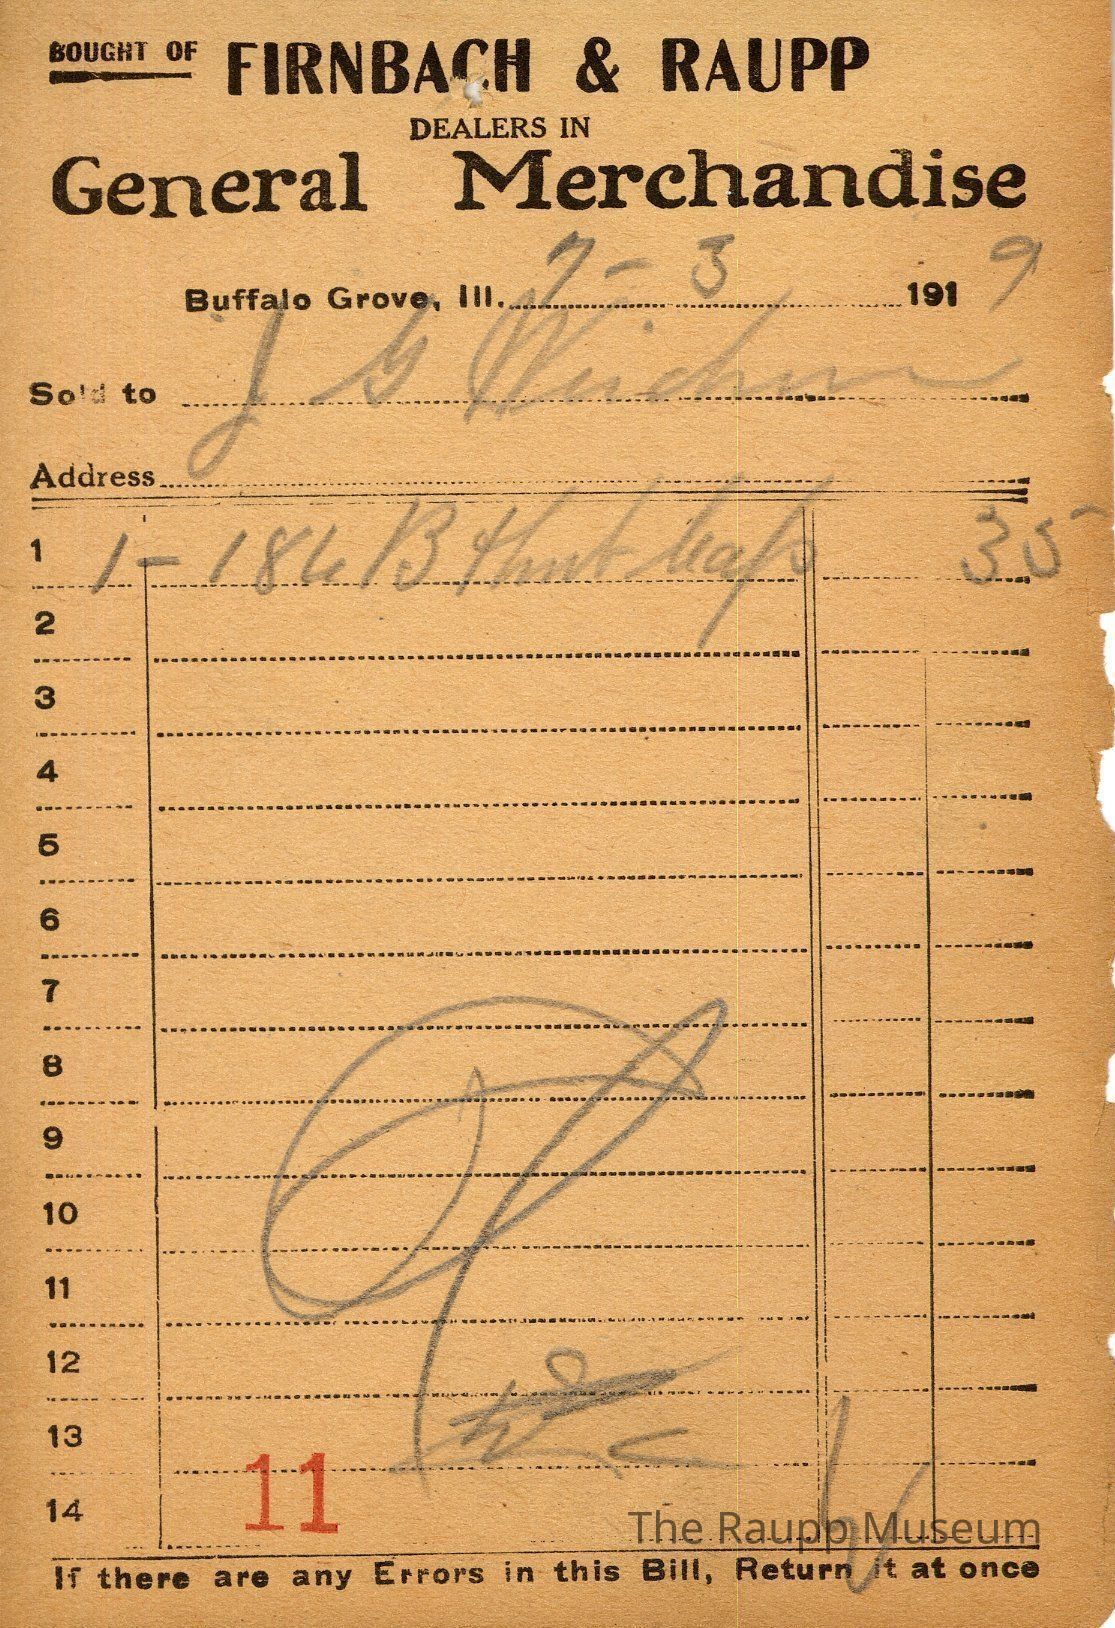 BOUGHT OF FIRNBACH & RAUPP
DEALERS IN
General Merchandise
Buffalo Grove, Ill. 7-3 1919
Sold to J G
Address
1 1- B 35
2
3
4
5
6
7
8
9
10
11
12
13
14
11
The Raupp Museum
If there are any Errors in this Bill, Return it at once